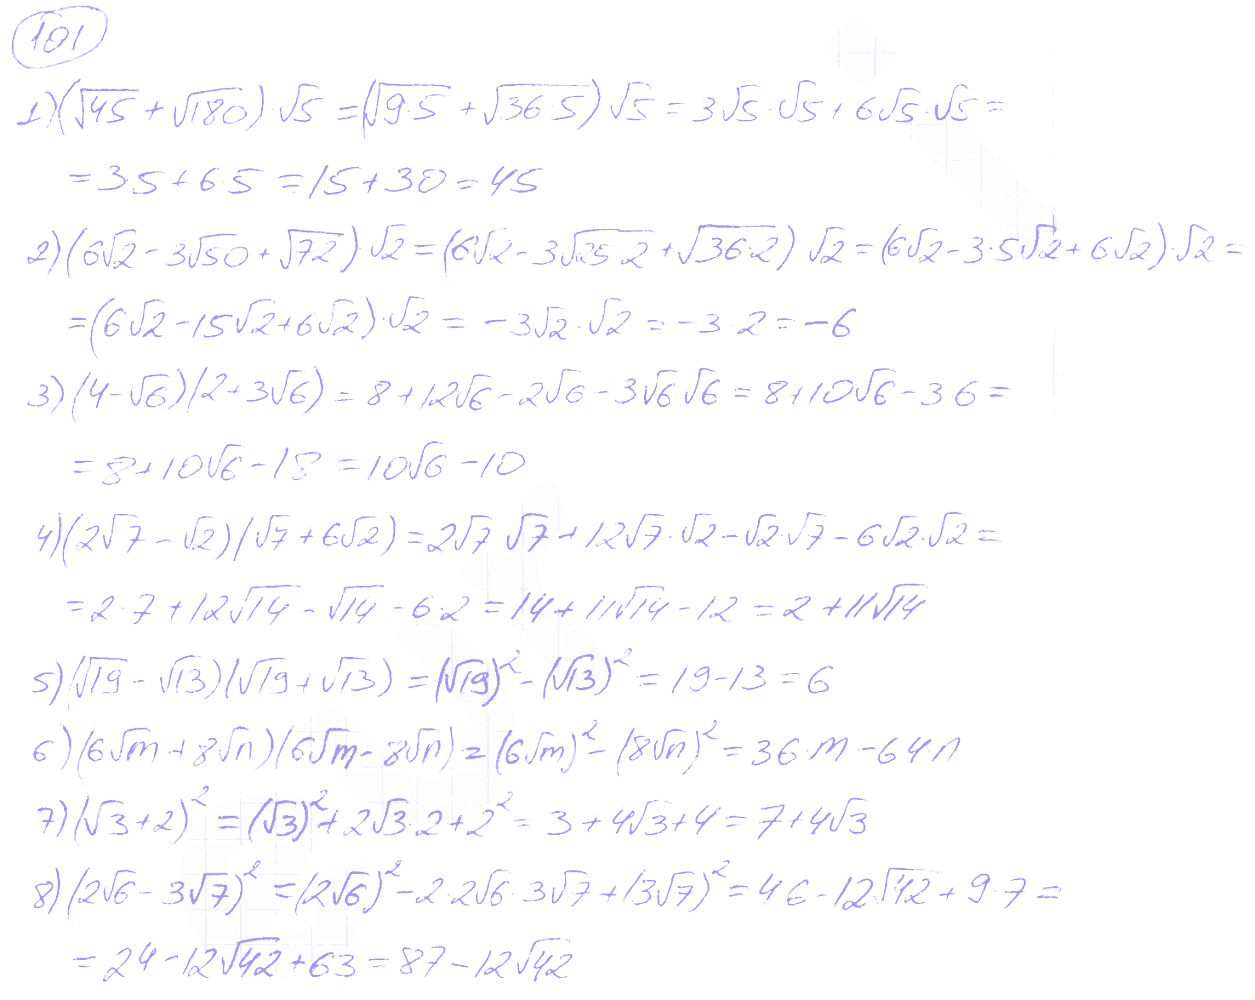 101
1) (√45 + √180) · √5 = (√9·5 + √36·5) √5 = 3√5 · √5 + 6√5 · √5 =
= 3·5 + 6·5 = 15 + 30 = 45
2) (6√2 - 3√50 + √72) √2 = (6√2 - 3√25·2 + √36·2) √2 = (6√2 - 3·5√2 + 6√2) · √2 =
= (6√2 - 15√2 + 6√2) · √2 = -3√2 · √2 = -3·2 = -6
3) (4 - √6)(2 + 3√6) = 8 + 12√6 - 2√6 - 3√6 √6 = 8 + 10√6 - 3 6 =
= 8 + 10√6 - 18 = 10√6 - 10
4) (2√7 - √2)(√7 + 6√2) = 2√7 √7 + 12√7 · √2 - √2 · √7 - 6√2 · √2 =
= 2·7 + 12√14 - √14 - 6·2 = 14 + 11√14 - 12 = 2 + 11√14
5) (√19 - √13)(√19 + √13) = (√19)² - (√13)² = 19 - 13 = 6
6) (6√m + 8√n)(6√m - 8√n) = (6√m)² - (8√n)² = 36·m - 64·n
7) (√3 + 2)² = (√3)² + 2√3·2 + 2² = 3 + 4√3 + 4 = 7 + 4√3
8) (2√6 - 3√7)² = (2√6)² - 2·2√6·3√7 + (3√7)² = 4 6 - 12√42 + 9·7 =
= 24 - 12√42 + 63 = 87 - 12√42